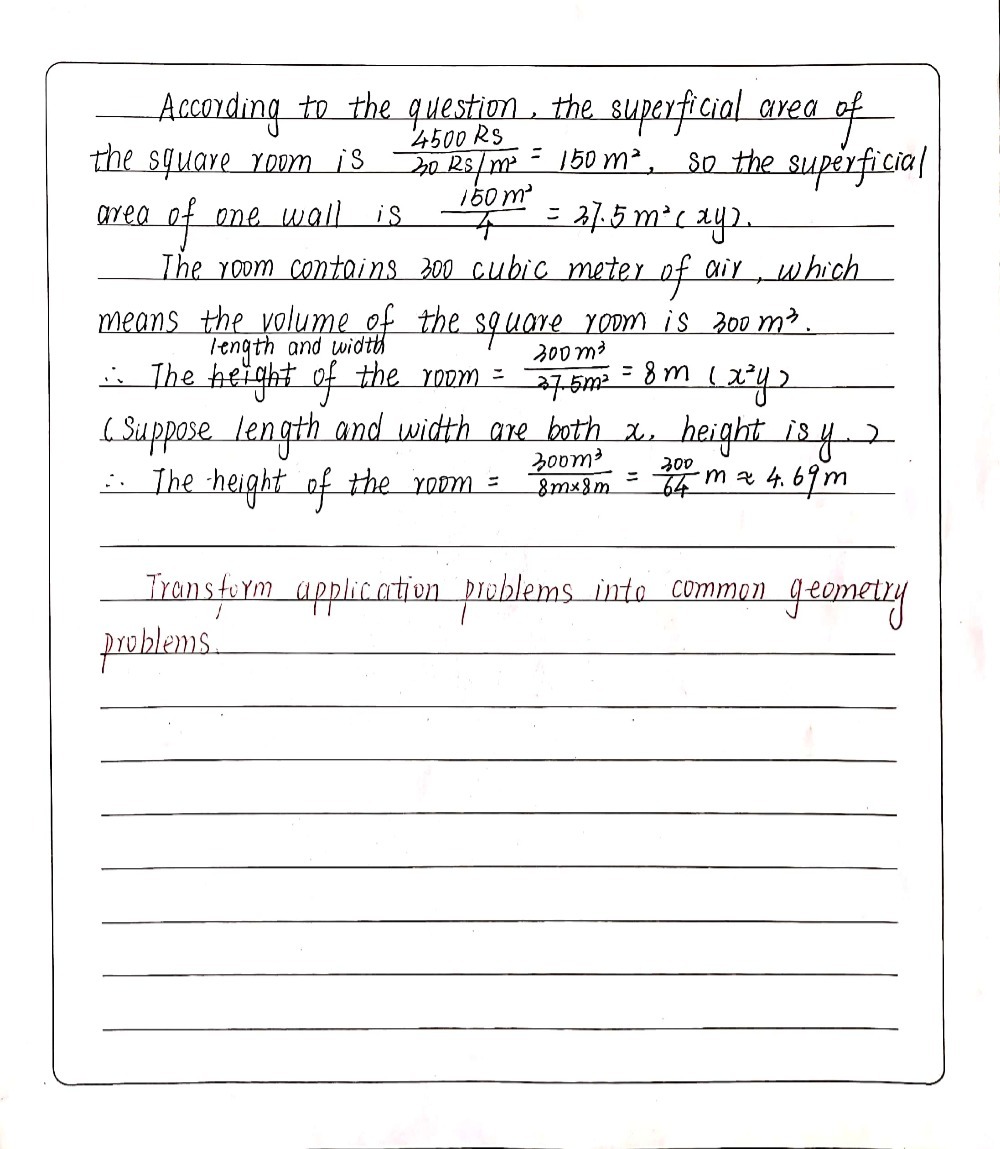 According to the question, the superficial area of
the square room is 4500 Rs / 30 Rs/m² = 150 m², so the superficial
area of one wall is 150 m² / 4 = 37.5 m² (xy).
The room contains 300 cubic meter of air, which
means the volume of the square room is 300 m³.
length and width
∴ The height of the room = 300 m³ / 37.5m² = 8 m (x²y)
(Suppose length and width are both x, height is y.)
∴ The height of the room = 300m³ / 8m×8m = 300/64 m ≈ 4.69 m
Transform application problems into common geometry
problems.